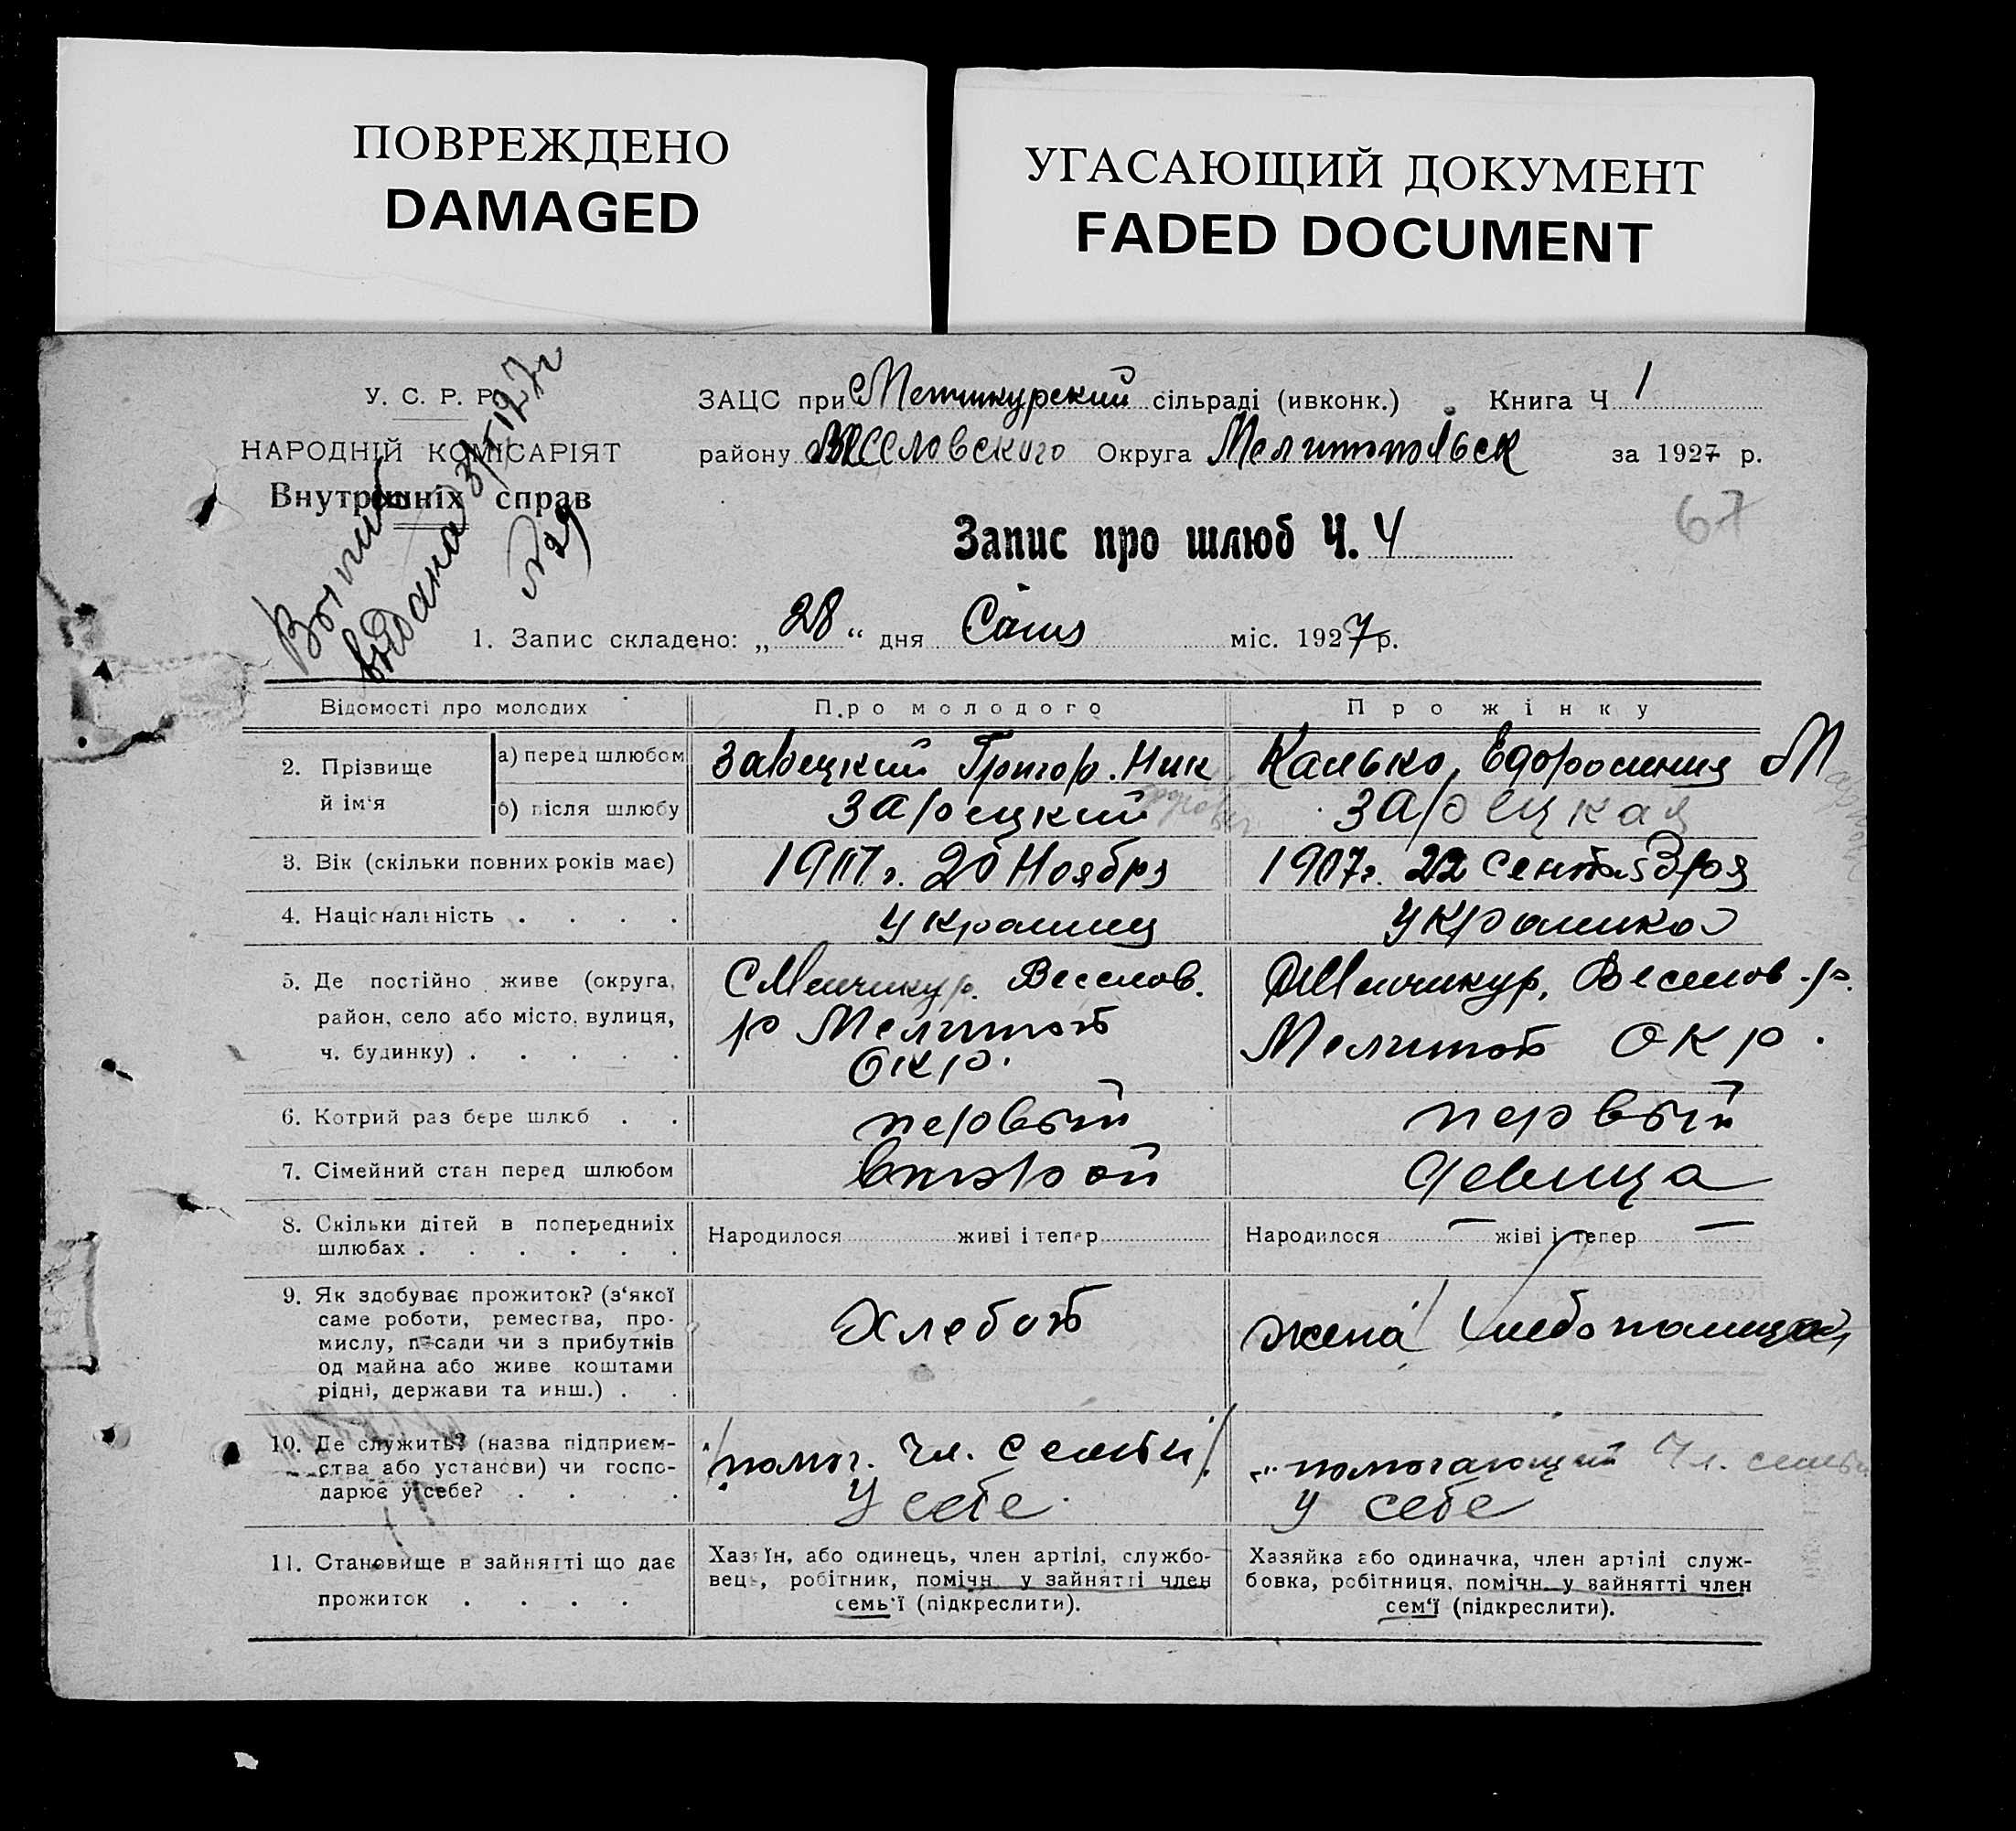 ПОВРЕЖДЕНО
DAMAGED
УГАСАЮЩИЙ ДОКУМЕНТ
FADED DOCUMENT
У. С. Р. Р.
НАРОДНІЙ КОМІСАРІЯТ
Внутрішніх справ
выдана
ЗАЦС при Менчикурский сільраді (ивконк.) Книга Ч 1
району Веселовского Округа Мелитопольск за 1927 р.
67
Запис про шлюб Ч. 4
1. Запис складено: „28“ дня міс. 1927 р.
Відомості про молодих Про молодого Про жінку
2. Прізвище й ім'я
а) перед шлюбом Зарецкий Григор. Ник Калько, М
б) після шлюбу Зарецкий Зарецкая
3. Вік (скільки повних років має) 20 Ноября 1907 г. 22 Сентября
4. Національність . . . . Украинец Украинка
5. Де постійно живе (округа, район, село або місто, вулиця, ч. будинку) . . . . .
С Менчикур. Веселов.
р Мелитоп
окр.
Менчикур, Веселов. р.
Мелитоп окр.
6. Котрий раз бере шлюб . . первый первый
7. Сімейний стан перед шлюбом второй девица
8. Скільки дітей в попередніх шлюбах . . . . . .
Народилося живі і тепер
Народилося — жіві і тепер —
9. Як здобуває прожиток? (з'якої
саме роботи, ремества, про-
мислу, посади чи з прибутків
од майна або живе коштами
рідні, держави та инш.) . .
Хлебоп
жена
10. Де служить? (назва підприєм-
ства або установи) чи госпо-
дарює у себе? . . . .
помог. чл. семьи
У себе
помогающий чл. семьи
у себе
11. Становище в зайнятті що дає
прожиток . . . .
Хазяїн, або одинець, член артілі, службо-
вець, робітник, помічн. у зайнятті член
семь'ї (підкреслити).
Хазяйка або одиначка, член артілі служ-
бовка, робітниця, помічн. у зайнятті член
сем'ї (підкреслити).